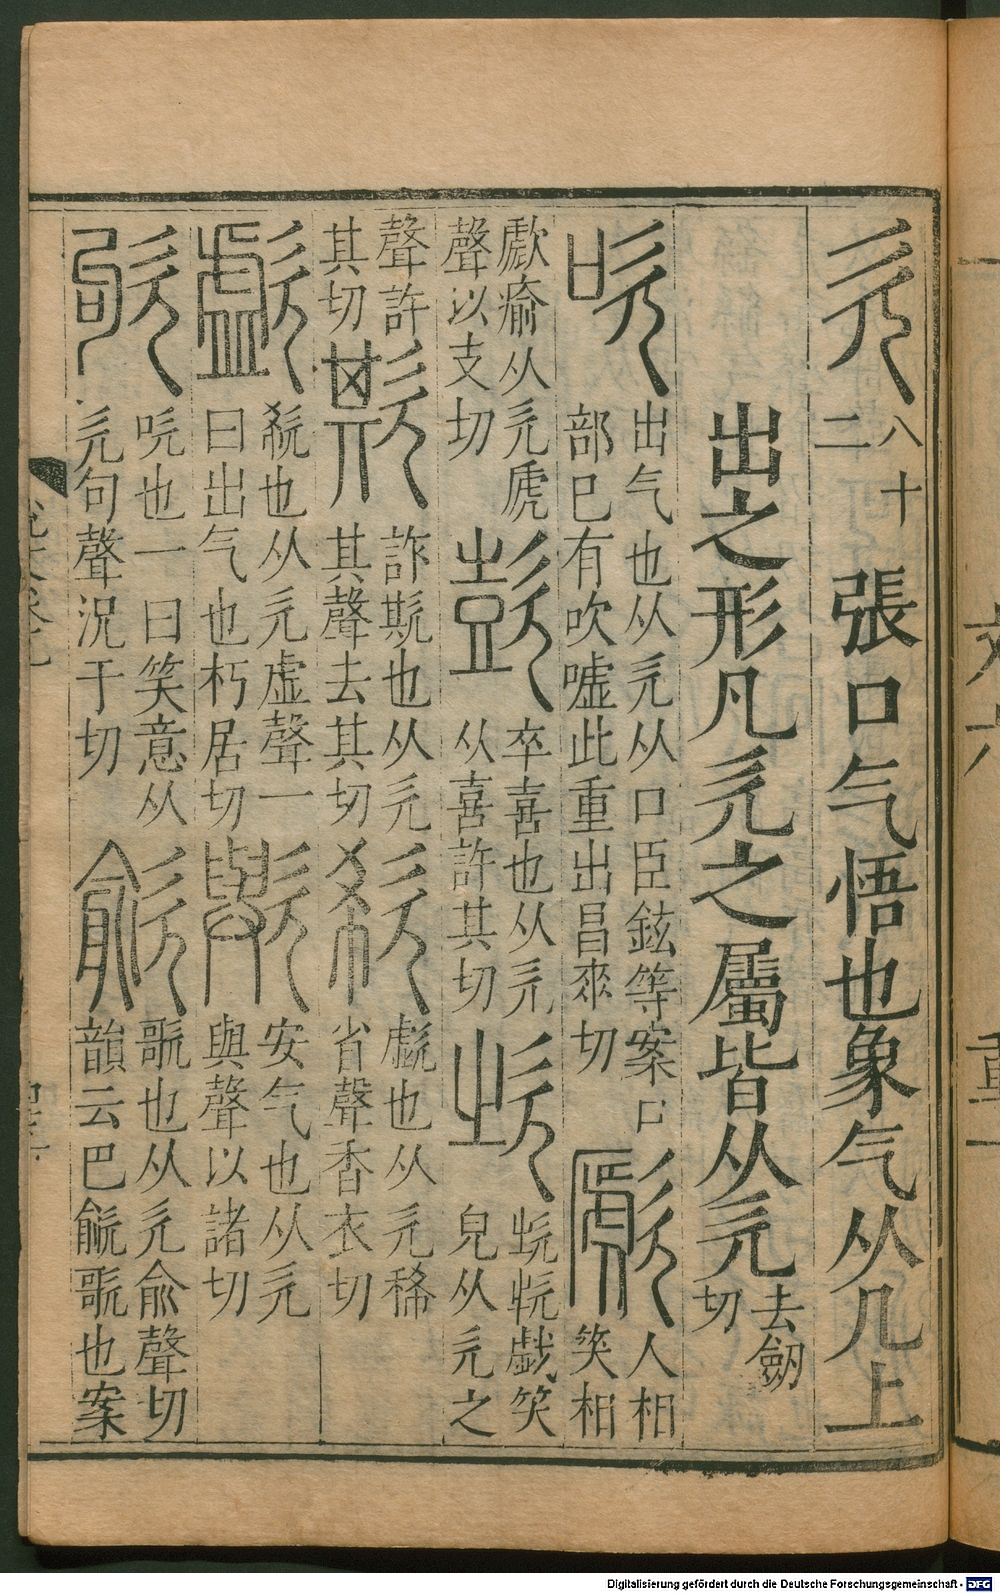 欠八十二張口气悟也象气从几上
出之形凡欠之屬皆从欠去劒切
吹出气也从欠从口臣鉉等案口
部已有吹噓此重出昌𠂹切
歋人相
笑相
歋瘉从欠虒
聲以支切
歖卒喜也从欠
从喜許其切
㰞㰞㰞戲笑
皃从欠之
聲許
其切
欺詐欺也从欠
其聲去其切
欷歔也从欠稀
省聲香衣切
歔欷也从欠虛聲一
曰出气也朽居切
歟安气也从欠
與聲以諸切
欨吹也一曰笑意从
欠句聲況于切
歈歌也从欠俞聲切
韻云巴歈歌也案
Digitalisierung gefördert durch die Deutsche Forschungsgemeinschaft - DFG